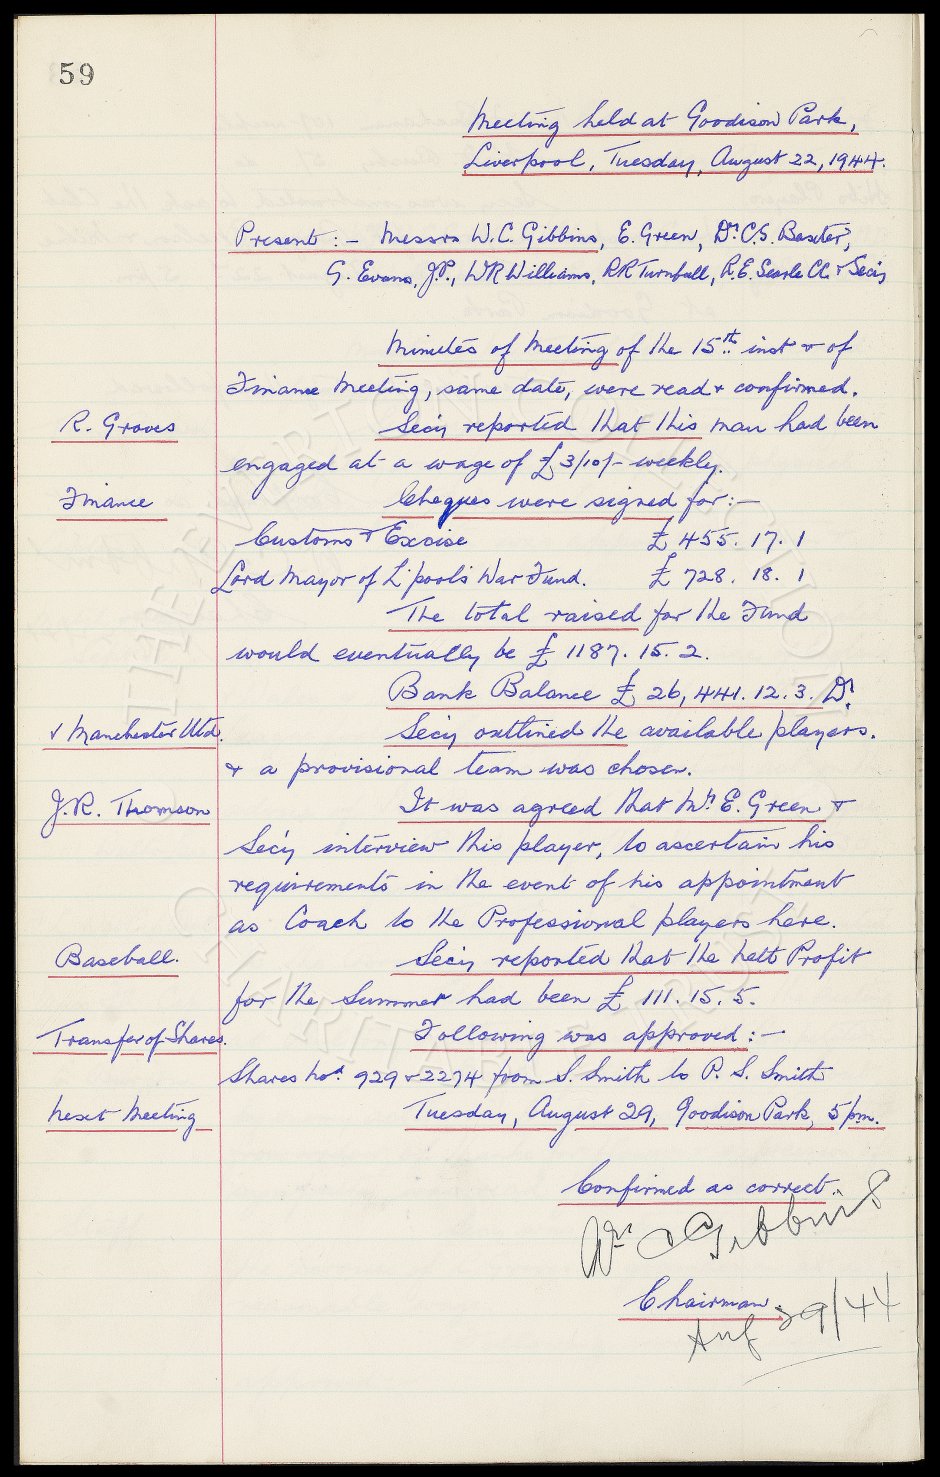 59
Meeting held at Goodison Park,
Liverpool, Tuesday, August 22, 1944.
Present :- Messrs W.C. Gibbins, E. Green, Dr. C.S. Baxter,
G. Evans, J.P., W R Williams, R R Turnbull, R.E. Searle CA. & Secy
Minutes of Meeting of the 15th inst & of
Finance Meeting, same date, were read & confirmed.
R. Groves
Secy reported that this man had been
engaged at a wage of £3/10/- weekly.
Finance
Cheques were signed for :-
Customs & Excise £ 455. 17. 1
Lord Mayor of L'pool's War Fund. £ 728. 18. 1
The total raised for the Fund
would eventually be £ 1187. 15. 2.
Bank Balance £ 26,441. 12. 3. Dr.
v Manchester Utd.
Secy outlined the available players.
& a provisional team was chosen.
J.R. Thomson
It was agreed that Mr. E. Green &
Secy interview this player, to ascertain his
requirements in the event of his appointment
as Coach to the Professional players here.
Baseball.
Secy reported that the Nett Profit
for the Summer had been £ 111. 15. 5.
Transfer of Shares.
Following was approved :-
Shares Nos. 929 & 2274 from S. Smith to P. S. Smith
Next Meeting
Tuesday, August 29, Goodison Park, 5 pm.
Confirmed as correct.
Wm C Gibbins
Chairman.
Aug 29/44
THE EVERTON COLLECTION
CHARITABLE TRUST